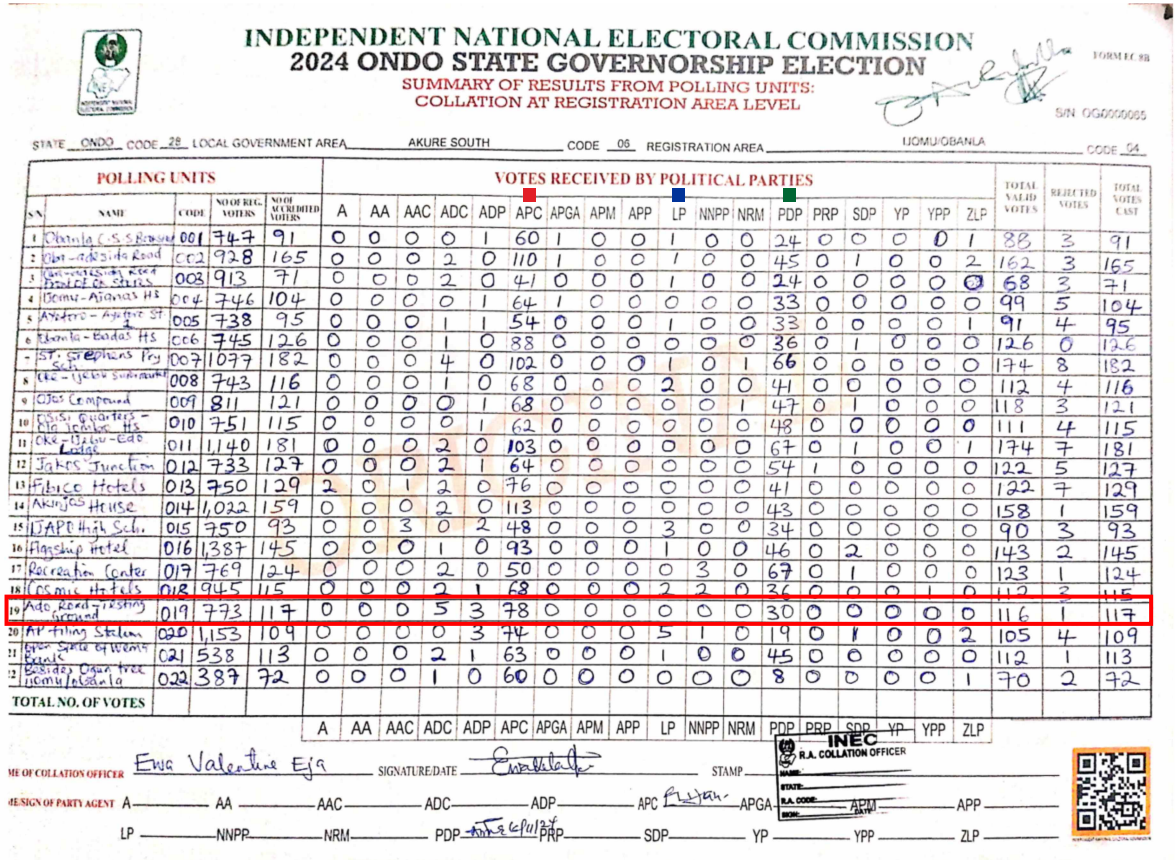 INDEPENDENT NATIONAL ELECTORAL COMMISSION
2024 ONDO STATE GOVERNORSHIP ELECTION
SUMMARY OF RESULTS FROM POLLING UNITS:
COLLATION AT REGISTRATION AREA LEVEL
FORM EC 8B
S/N OG0000065
STATE ONDO CODE 28 LOCAL GOVERNMENT AREA AKURE SOUTH CODE 06 REGISTRATION AREA IJOMU/OBANLA CODE 04
POLLING UNITS VOTES RECEIVED BY POLITICAL PARTIES TOTAL VALID VOTES REJECTED VOTES TOTAL VOTES CAST
S/N NAME CODE NO OF REG. VOTERS NO OF ACCREDITED VOTERS A AA AAC ADC ADP APC APGA APM APP LP NNPP NRM PDP PRP SDP YP YPP ZLP
1 Obanla C.S.S 001 747 91 0 0 0 0 1 60 1 0 0 1 0 0 24 0 0 0 0 1 88 3 91
2 Oba-adesida Road 002 928 165 0 0 0 2 0 110 1 0 0 1 0 0 45 0 1 0 0 2 162 3 165
3 003 913 71 0 0 0 2 0 41 0 0 0 1 0 0 24 0 0 0 0 68 3 71
4 Ijomu-Aianas HS 004 746 104 0 0 0 0 1 64 1 0 0 0 0 0 33 0 0 0 0 0 99 5 104
5 005 738 95 0 0 0 1 1 54 0 0 0 1 0 0 33 0 0 0 0 1 91 4 95
6 Obanla-Badas HS 006 745 126 0 0 0 1 0 88 0 0 0 0 0 0 36 0 1 0 0 0 126 0 126
ST. Stephens Pry Sch 007 1077 182 0 0 0 4 0 102 0 0 0 1 0 1 66 0 0 0 0 0 174 8 182
8 008 743 116 0 0 0 1 0 68 0 0 0 2 0 0 41 0 0 0 0 0 112 4 116
9 Ojos Compound 009 811 121 0 0 0 0 1 68 0 0 0 0 0 1 47 0 1 0 0 0 118 3 121
10 Osisi Quarters- HS 010 751 115 0 0 0 0 1 62 0 0 0 0 0 0 48 0 0 0 0 0 111 4 115
11 Oke-Ijebu-Edo Lodge 011 1,140 181 0 0 0 2 0 103 0 0 0 0 0 0 67 0 1 0 0 1 174 7 181
12 Jakos Junction 012 733 127 0 0 0 2 1 64 0 0 0 0 0 0 54 1 0 0 0 0 122 5 127
13 Fibico Hotels 013 750 129 2 0 1 2 0 76 0 0 0 0 0 0 41 0 0 0 0 0 122 7 129
14 Akinjos House 014 1,022 159 0 0 0 2 0 113 0 0 0 0 0 0 43 0 0 0 0 0 158 1 159
15 IJAPO High Sch. 015 750 93 0 0 3 0 2 48 0 0 0 3 0 0 34 0 0 0 0 0 90 3 93
16 Flagship Hotel 016 1,387 145 0 0 0 1 0 93 0 0 0 1 0 0 46 0 2 0 0 0 143 2 145
17 Recreation Center 017 769 124 0 0 0 2 0 50 0 0 0 0 3 0 67 0 1 0 0 0 123 1 124
18 Cosmic Hotels 018 945 115 0 0 0 2 1 68 0 0 0 2 2 0 36 0 0 0 1 0 112 3 115
19 Ado, Road-Testing Ground 019 773 117 0 0 0 5 3 78 0 0 0 0 0 0 30 0 0 0 0 0 116 1 117
20 AP filing Station 020 1,153 109 0 0 0 0 3 74 0 0 0 5 1 0 19 0 1 0 0 2 105 4 109
21 Open Space of Wema Bank 021 538 113 0 0 0 2 1 63 0 0 0 1 0 0 45 0 0 0 0 0 112 1 113
2 Besides Ogun tree Ijomu/obanla 022 387 72 0 0 0 1 0 60 0 0 0 0 0 0 8 0 0 0 0 1 70 2 72
TOTAL NO. OF VOTES
A AA AAC ADC ADP APC APGA APM APP LP NNPP NRM PDP PRP SDP YP YPP ZLP
ORIGINAL
ME OF COLLATION OFFICER Ewa Valentine Eja SIGNATURE/DATE STAMP
INEC
R.A. COLLATION OFFICER
NAME:
STATE:
R.A. CODE:
SIGN: DATE
ME/SIGN OF PARTY AGENT A AA AAC ADC ADP APC APGA APM APP
LP NNPP NRM PDP PRP SDP YP YPP ZLP